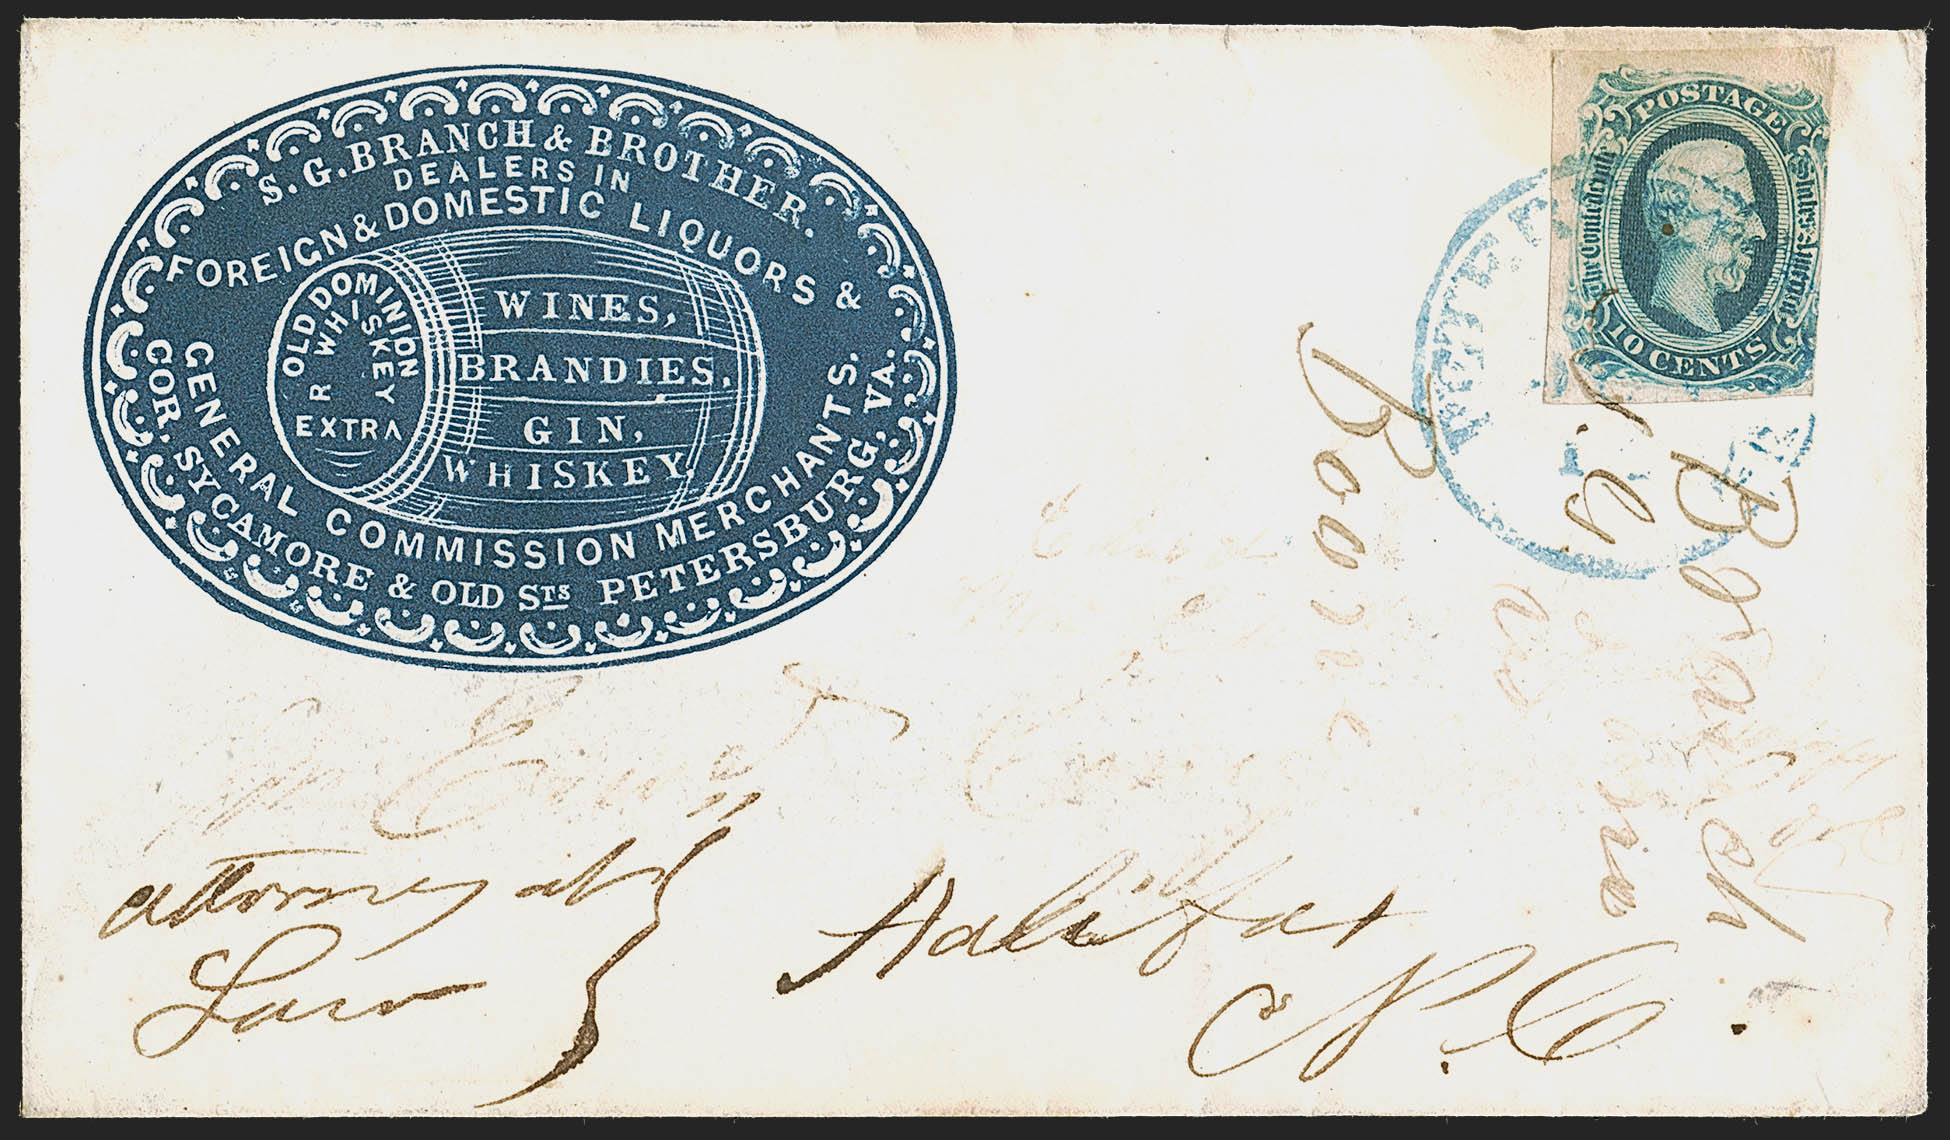 S. G. BRANCH & BROTHER.
DEALERS IN
FOREIGN & DOMESTIC LIQUORS &
GENERAL COMMISSION MERCHANTS.
COR. SYCAMORE & OLD STS PETERSBURG, VA.
OLD DOMINION
WHISKEY
R
EXTRA
WINES,
BRANDIES,
GIN,
WHISKEY,
POSTAGE
The Confederate
States of America
10 CENTS
PETER
Edw
attorney at
Law
Halifax
N. C.
S. G. Branch
Boone